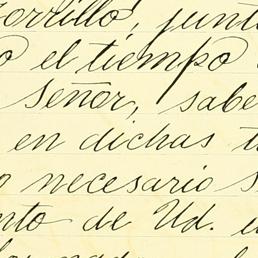 Zorrillo, junt
o el tiempo
Señor, sabe
en dichas t
o necesario s
nto de Ud. e